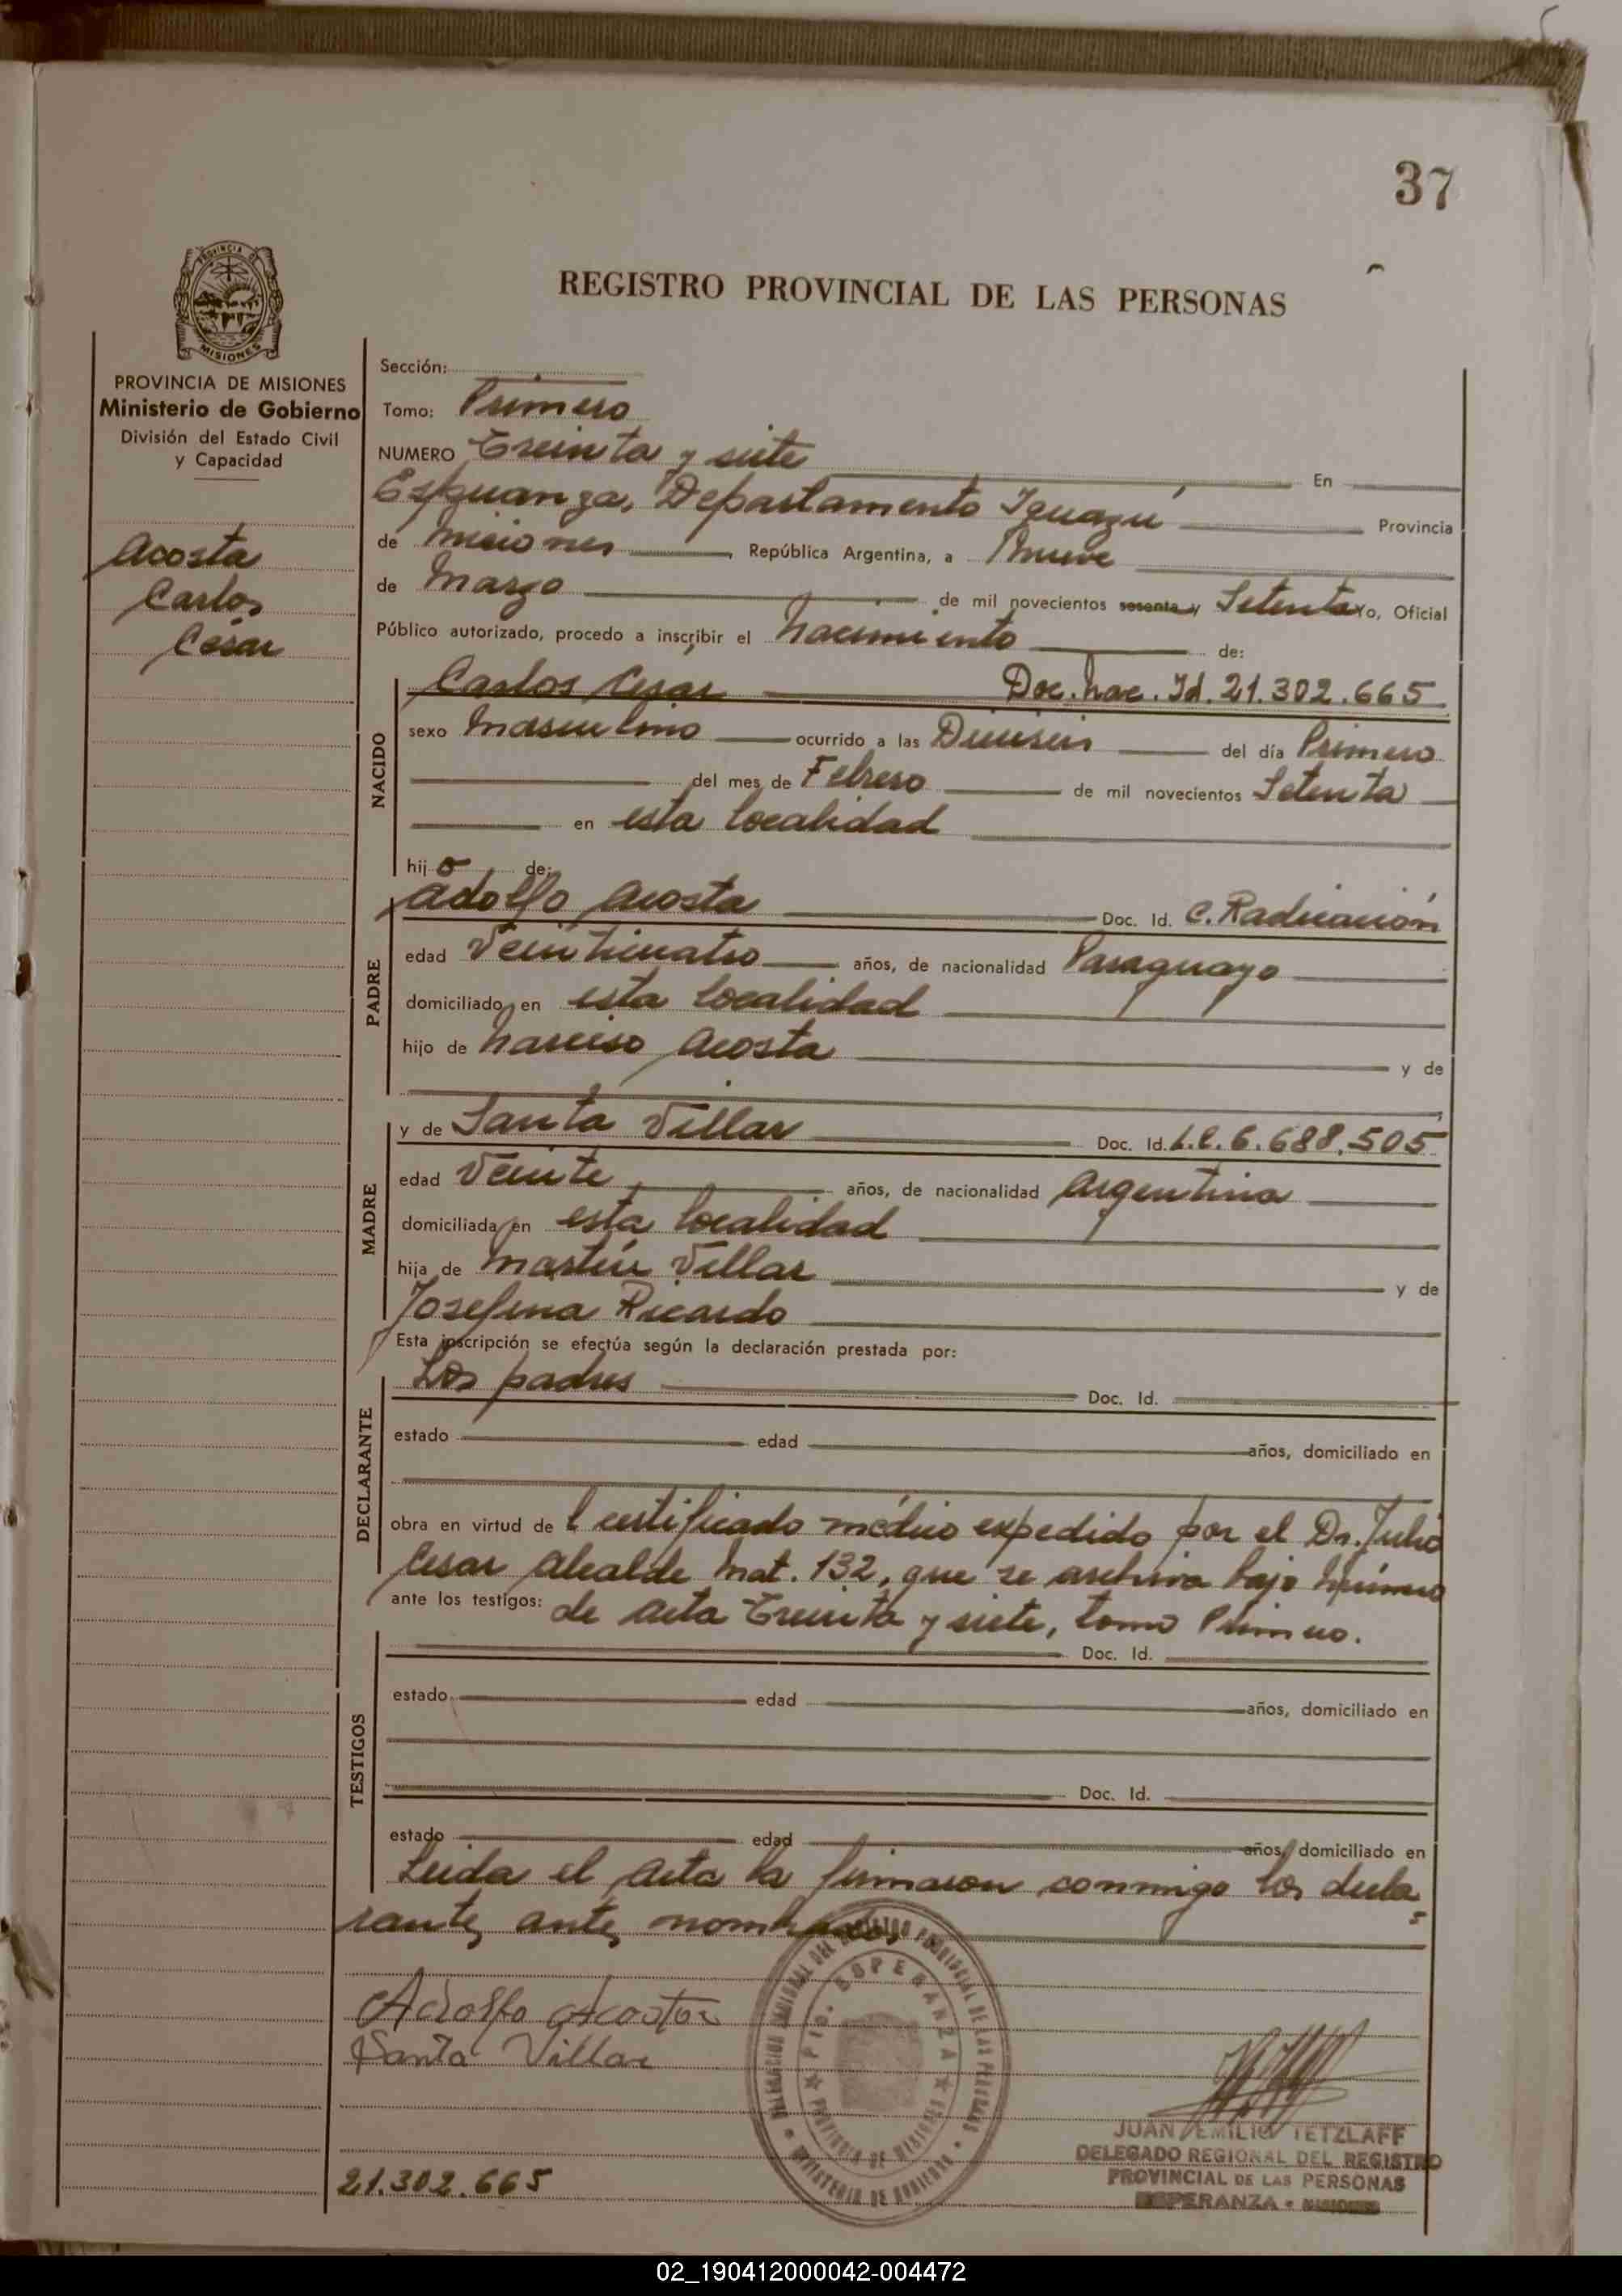 37
REGISTRO PROVINCIAL DE LAS PERSONAS
PROVINCIA DE MISIONES
Ministerio de Gobierno
División del Estado Civil
y Capacidad
Acosta
Carlos
César
Sección:
Tomo: Primero
NUMERO Treinta y siete En
Esperanza, Departamento Iguazú Provincia
de Misiones República Argentina, a Nueve
de Marzo de mil novecientos sesenta y Setenta Yo, Oficial
Público autorizado, procedo a inscribir el Nacimiento de:
NACIDO
Carlos Cesar Doc. Nac. Id. 21.302.665
sexo Masculino ocurrido a las Dieciseis del día Primero
del mes de Febrero de mil novecientos Setenta
en esta localidad
hijo de:
PADRE
Adolfo Acosta Doc. Id. C. Radicación
edad Veinticuatro años, de nacionalidad Paraguayo
domiciliado en esta localidad
hijo de Narciso Acosta y de
MADRE
y de Santa Villar Doc. Id. L.C. 6.688.505
edad Veinte años, de nacionalidad Argentina
domiciliada en esta localidad
hija de Martín Villar y de
Josefina Ricardo
Esta inscripción se efectúa según la declaración prestada por:
DECLARANTE
Los padres Doc. Id.
estado edad años, domiciliado en
obra en virtud de l certificado médico expedido por el Dr. Julio
Cesar Alcalde Mat. 132, que se archiva bajo Número
ante los testigos: de acta Treinta y siete, tomo Primero.
TESTIGOS
Doc. Id.
estado edad años, domiciliado en
Doc. Id.
estado edad años, domiciliado en
Leida el acta la firmaron conmigo los decla
rantes antes nombrados
Adolfo Acosta
Santa Villar
DELEGACION REGIONAL DEL REGISTRO PROVINCIAL DE LAS PERSONAS
MINISTERIO DE GOBIERNO
PTO. ESPERANZA
PROVINCIA DE MISIONES
JUAN EMILIO TETZLAFF
DELEGADO REGIONAL DEL REGISTRO
PROVINCIAL DE LAS PERSONAS
ESPERANZA - MISIONES
21.302.665
02_190412000042-004472